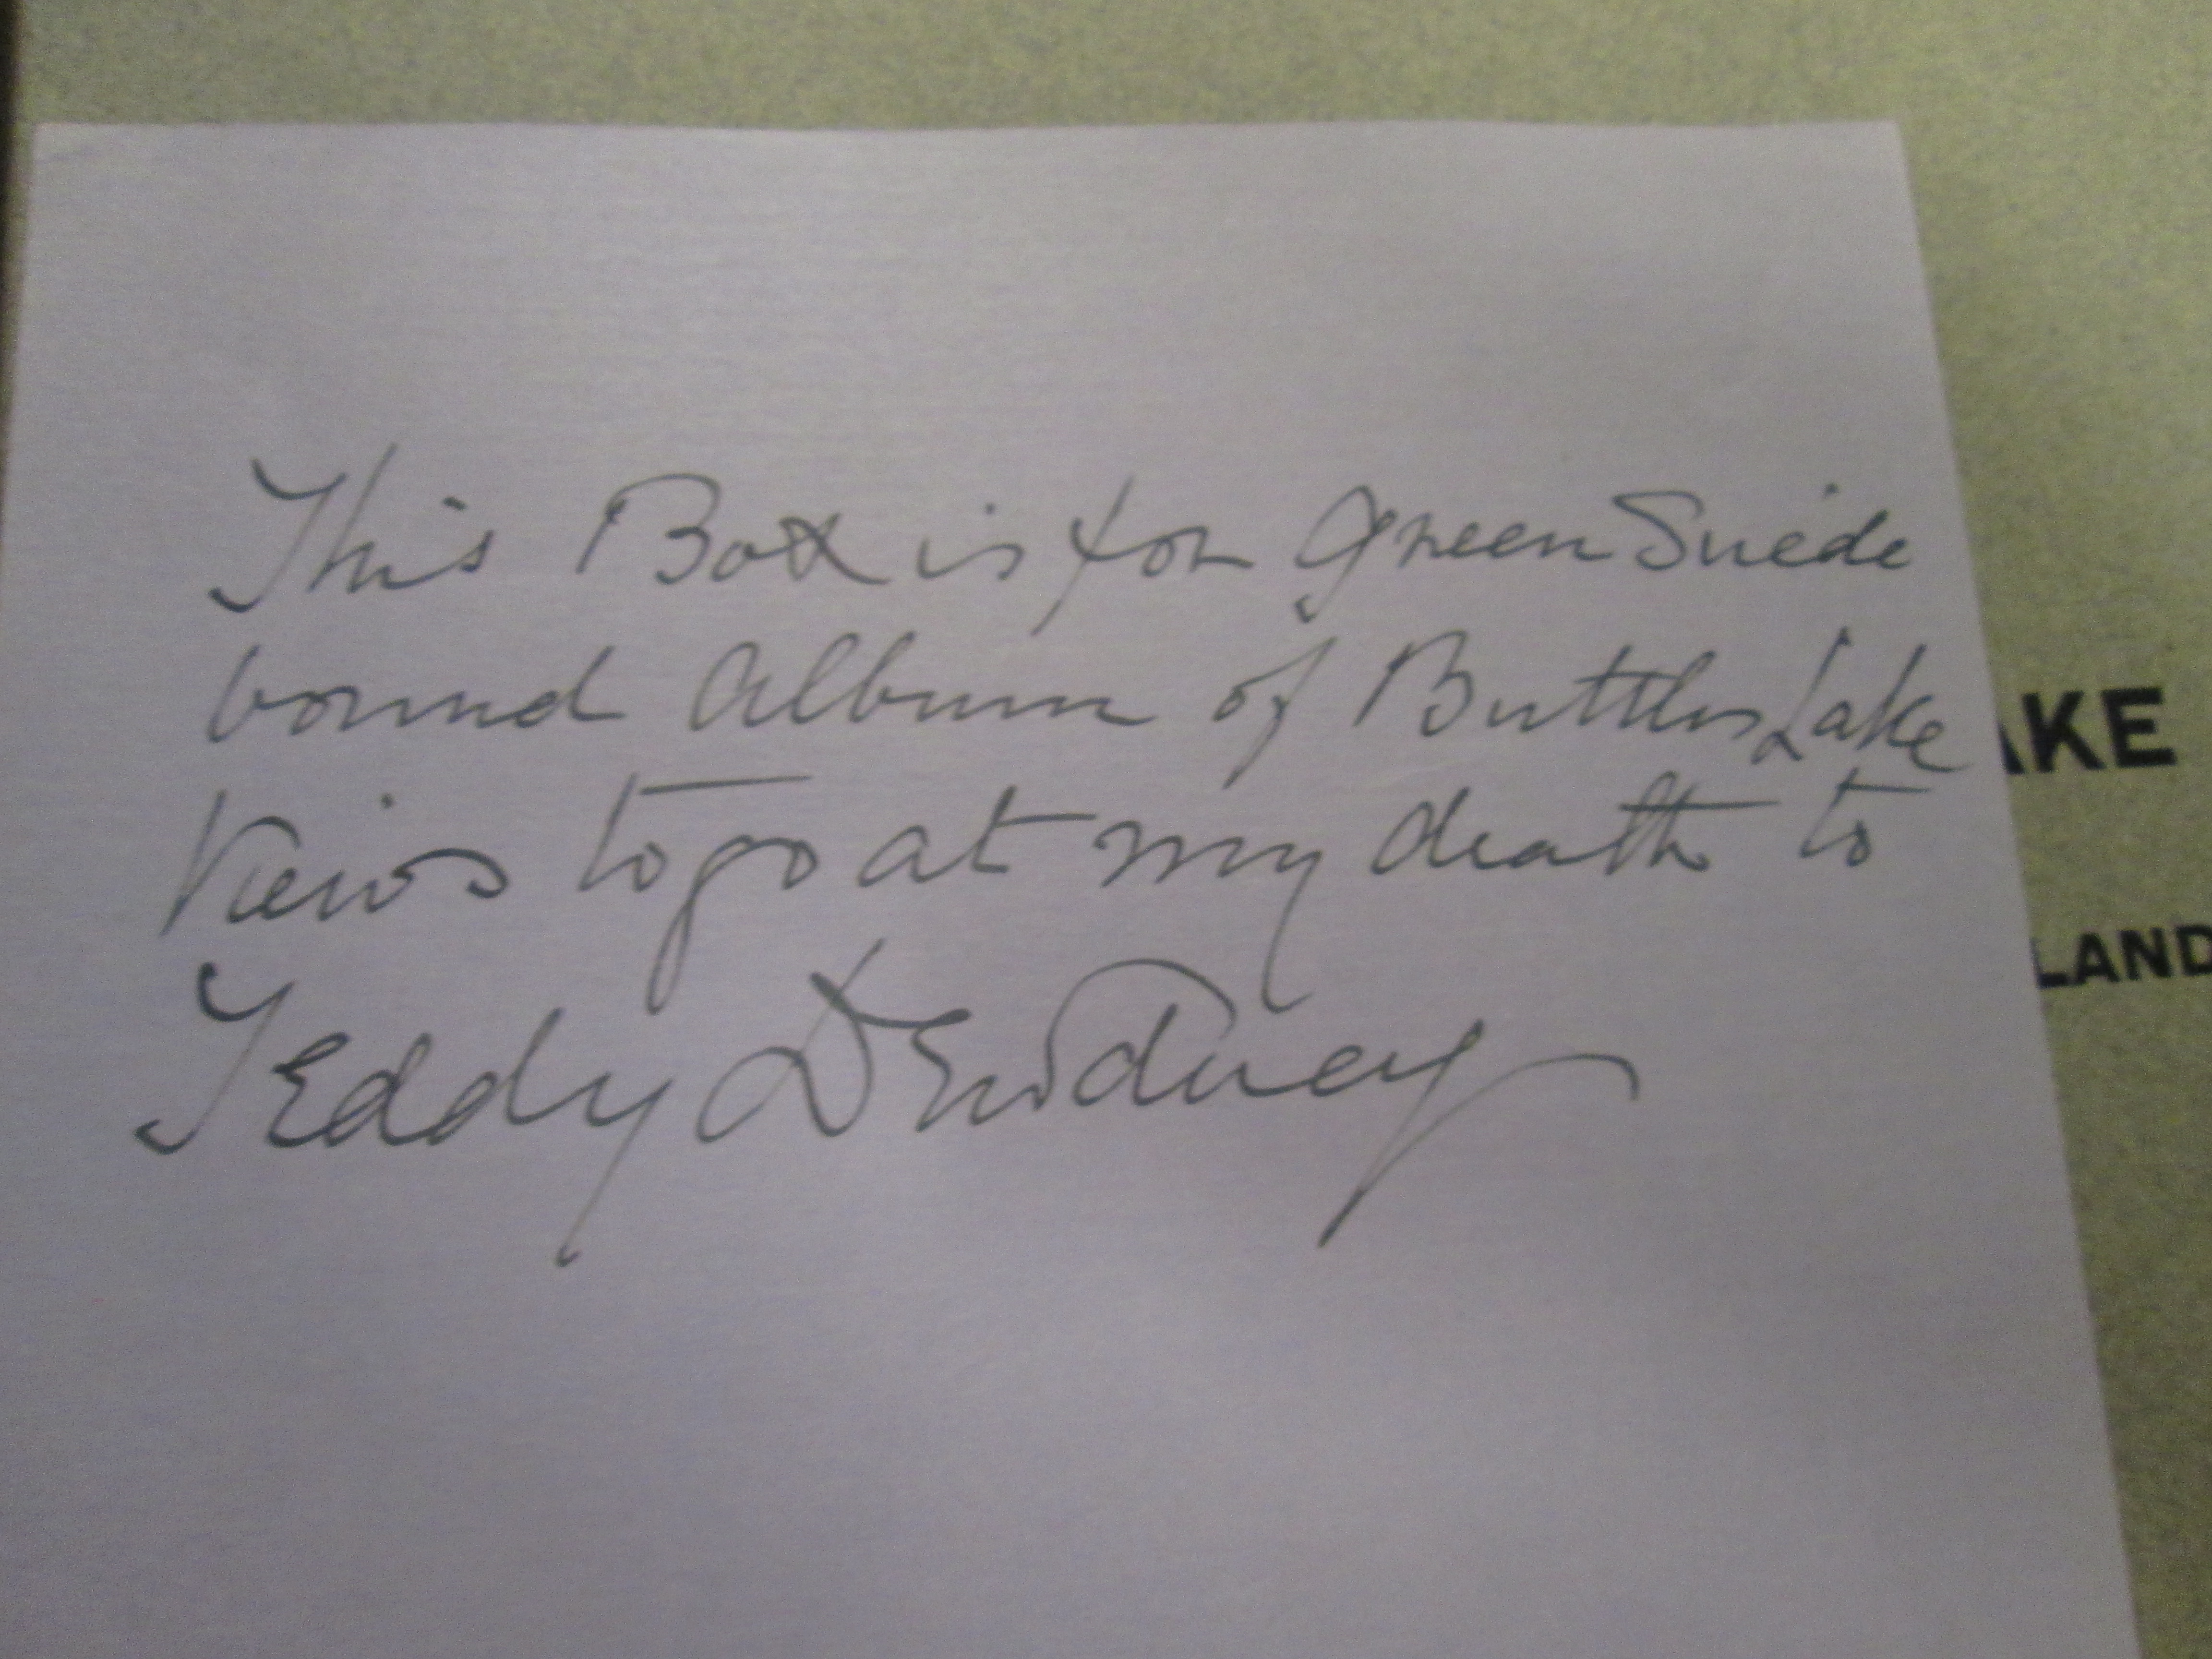 This Box is for Green Suede
bound Album of Buttles Lake
AKE
Views to go at my death to
LAND
Teddy Dewdney